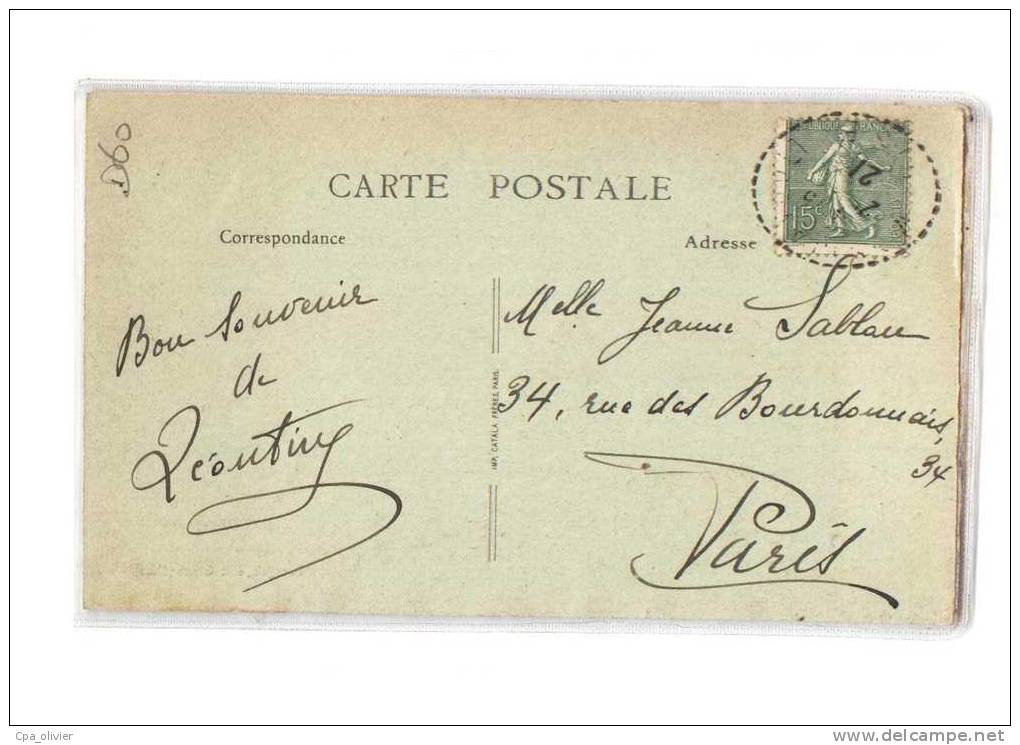 D60
CARTE POSTALE
Correspondance
Adresse
RÉPUBLIQUE FRANÇAISE
15c
7
21
3
Bon Souvenir
de
Léontine
IMP. CATALA FRÈRES, PARIS.
Melle Jeanne Sablon
34, rue des Bourdonnais,
34
Paris
Cpa_olivier
www.delcampe.net